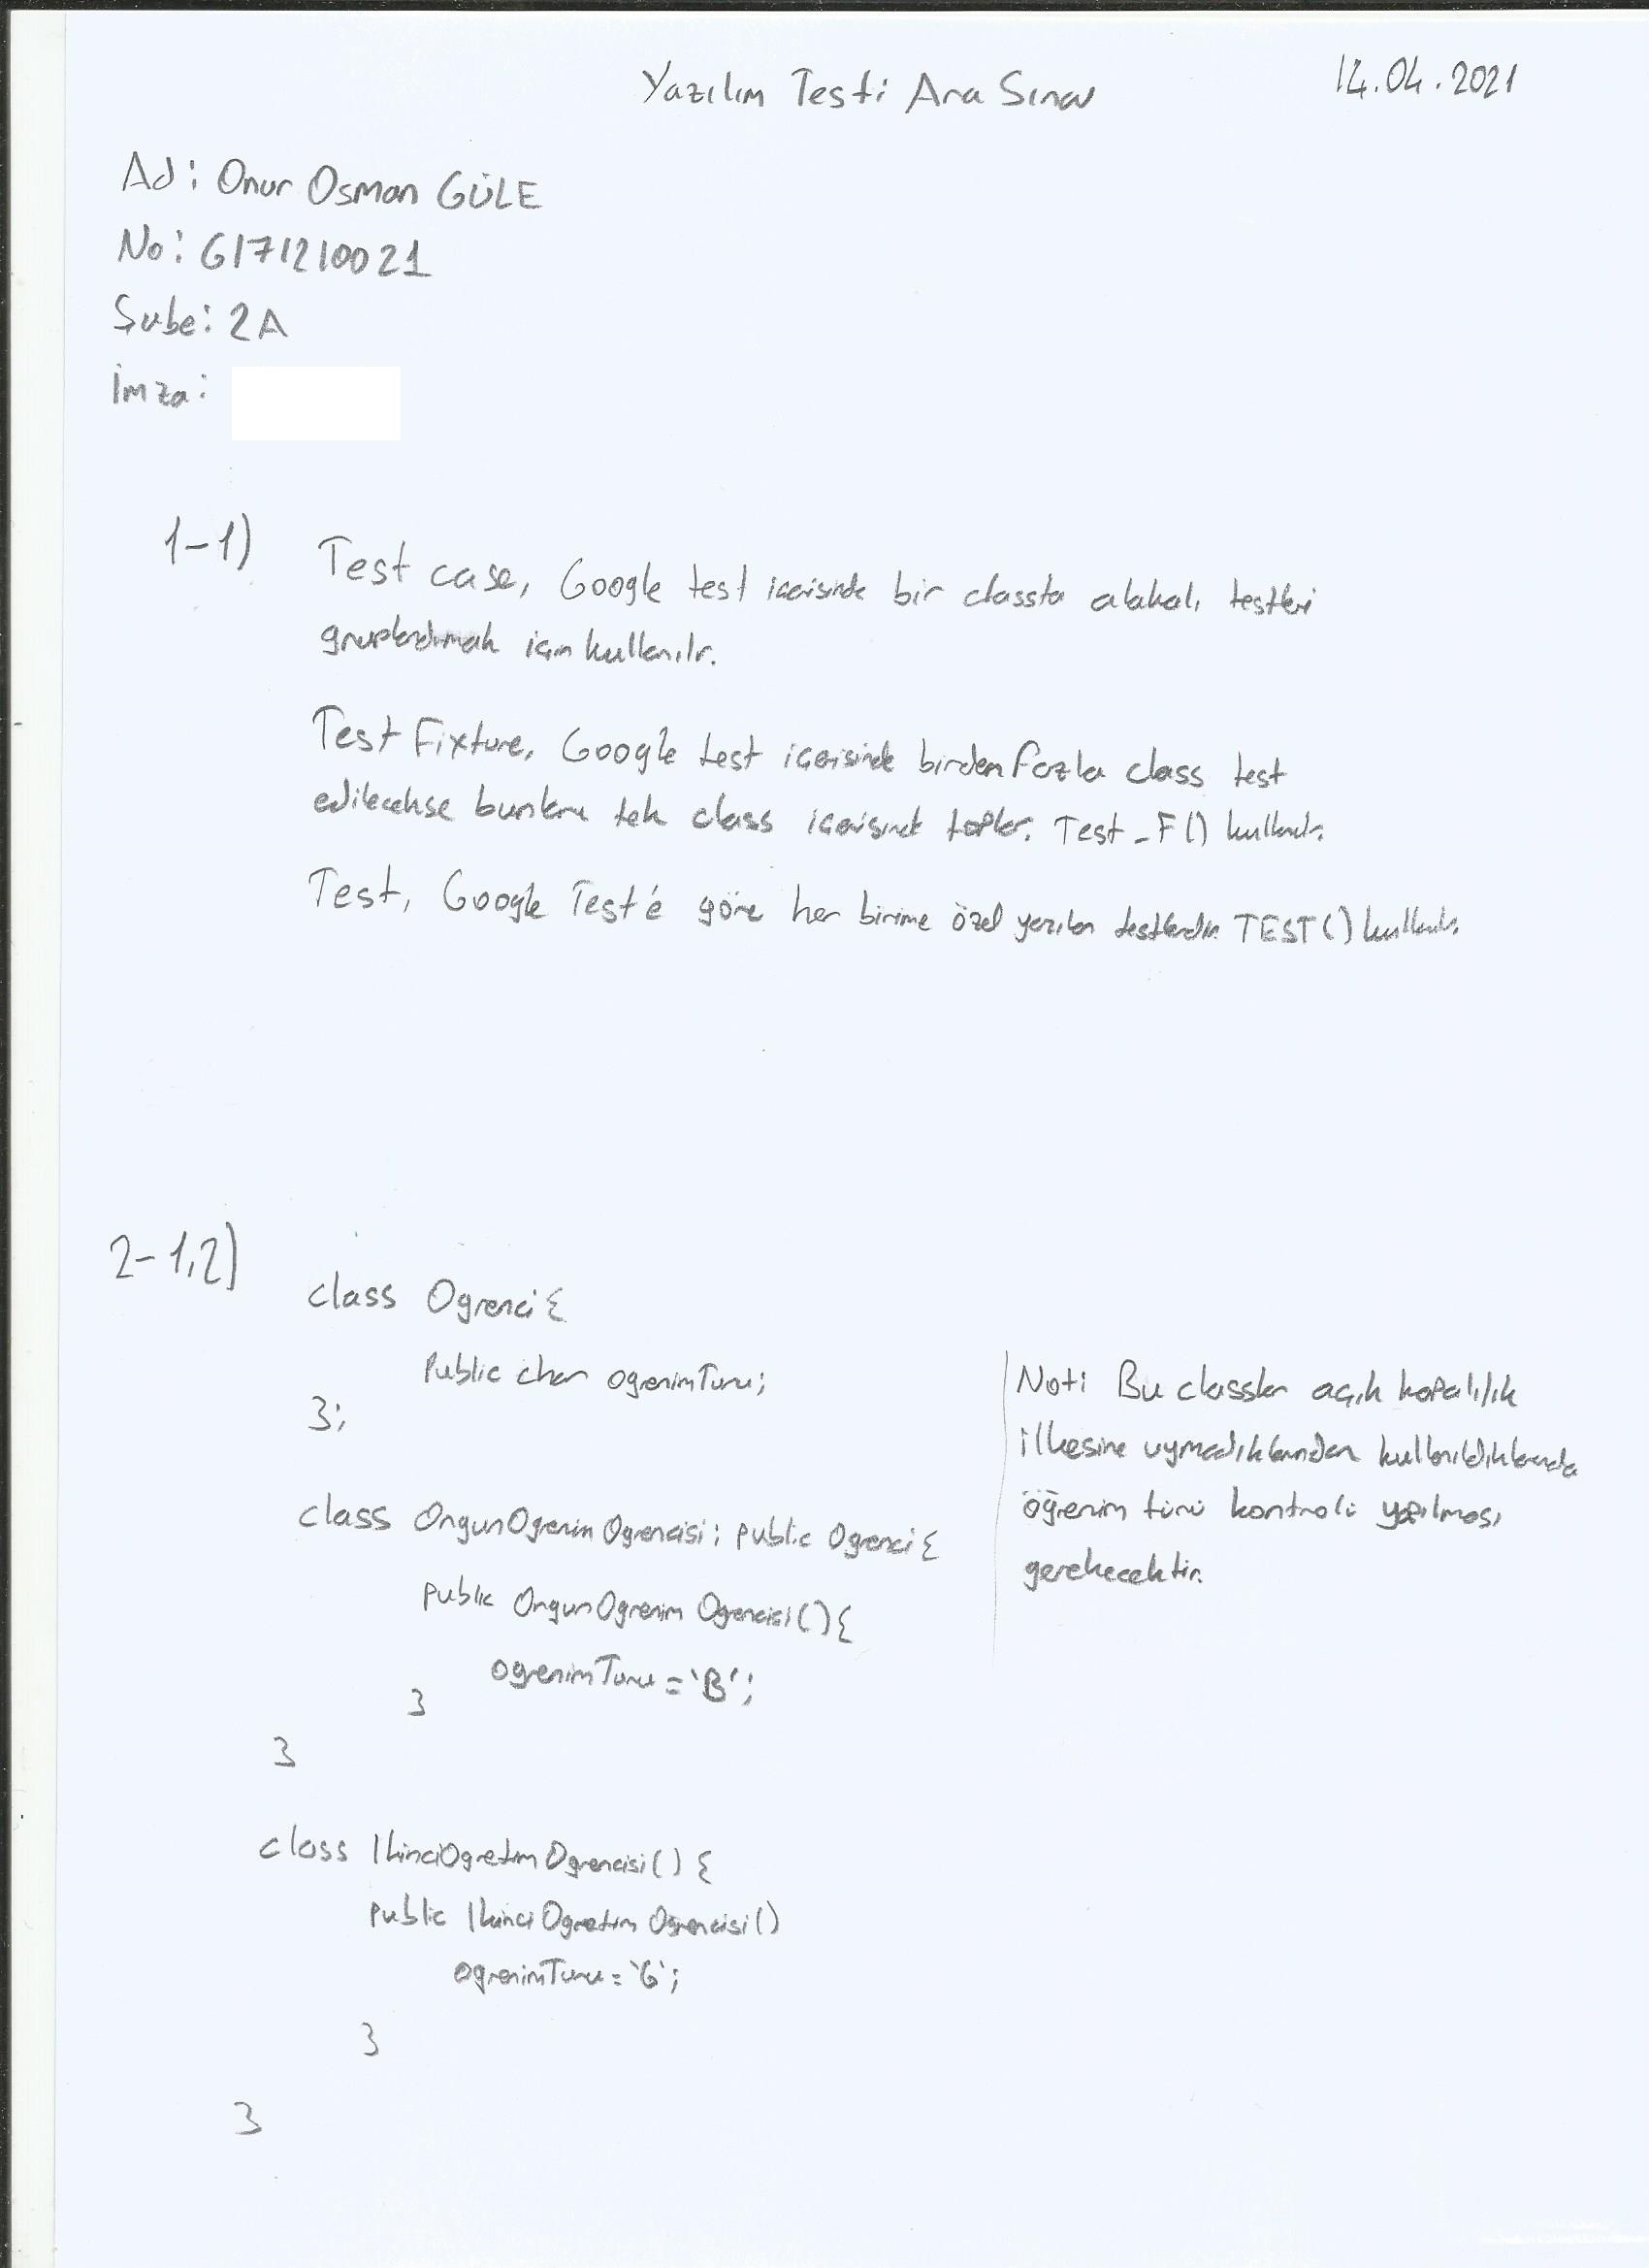 Yazılım Testi Ara Sınav
14.04.2021
Ad: Onur Osman GÜLE
No: G171210021
Şube: 2A
İmza:
1-1)
Test case, Google test içerisinde bir classta alakalı testleri
gruplandırmak için kullanılır.
Test Fixture, Google test içerisinde birden fazla class test
edilecekse bunları tek class içerisinde toplar. Test_F() kullanılır.
Test, Google Test'e göre her birime özel yazılan testlerdir. TEST() kullanılır.
2-1,2)
class Ogrenci{
Public char ogrenimTuru;
};
class OrgunOgrenimOgrencisi: public Ogrenci{
public OrgunOgrenimOgrencisi(){
ogrenimTuru='B';
}
}
class IkinciOgretimOgrencisi(){
public IkinciOgretimOgrencisi()
ogrenimTuru='G';
}
}
Not: Bu classlar açık kapalılık
ilkesine uymadıklarından kullanıldıklarında
öğrenim türü kontrolü yapılması
gerekecektir.